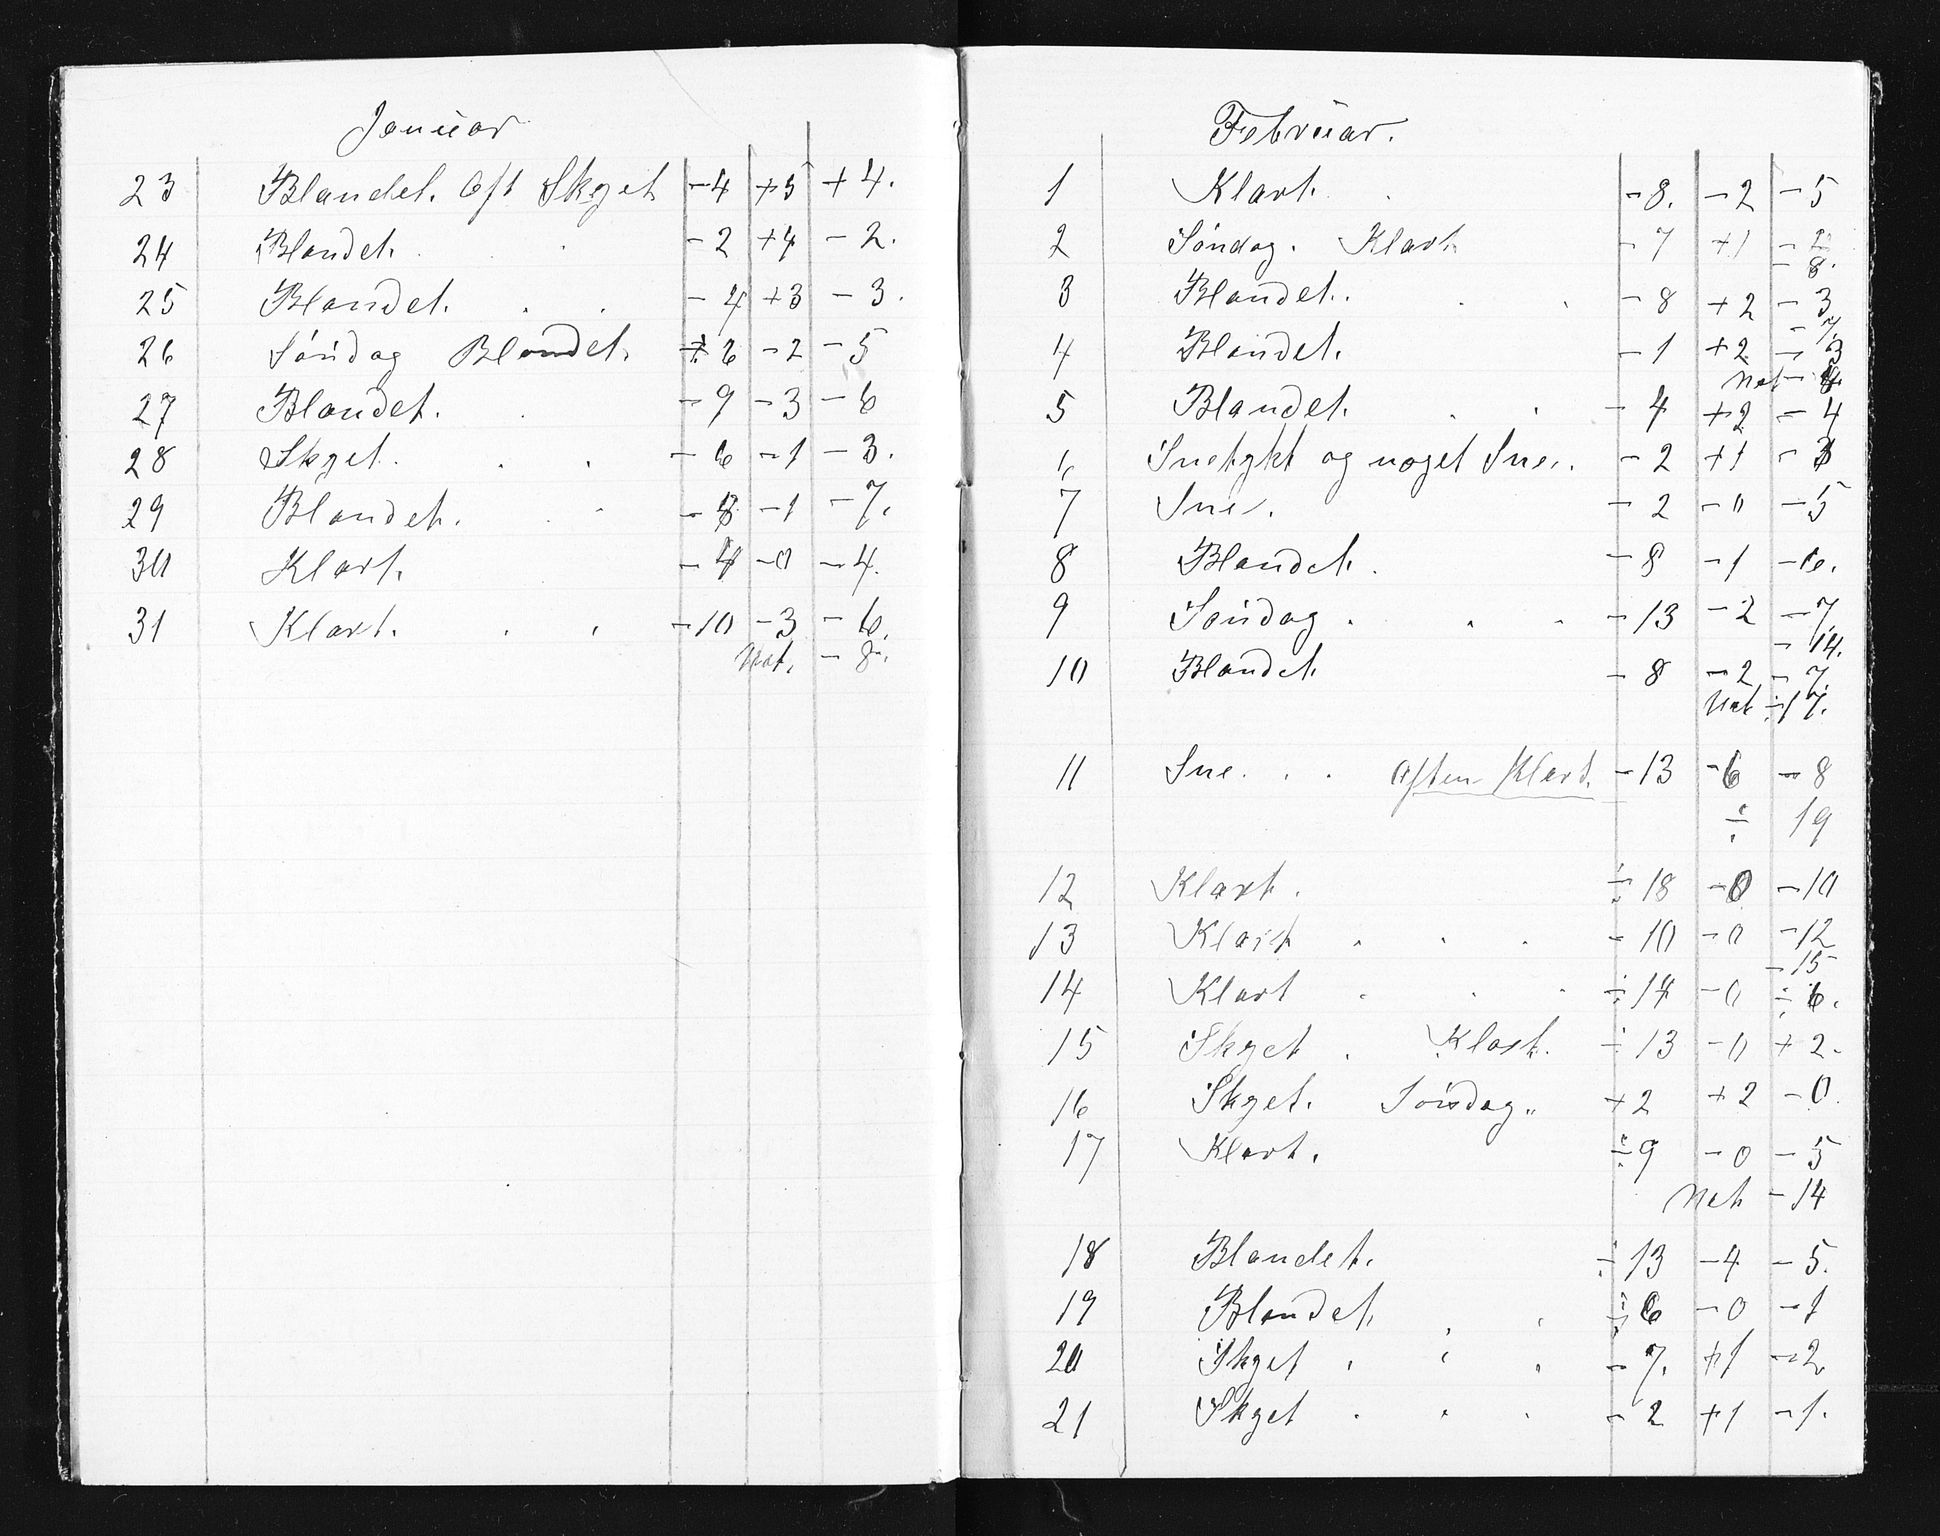 Januar
23 Blandet. Aft Skyet -4 +5 +4.
24 Blandet. -2 +4 -2.
25 Blandet. -4 +3 -3.
26 Søndag Blandet. ÷6 -2 -5
27 Blandet. -9 -3 -6
28 Skyet. -6 -1 -3.
29 Blandet. -8 -1 -7.
30 Klart. -4 -0 -4.
31 Klart. -10 -3 -6.
Nat. -8.
Februar.
1 Klart. -8. -2 -5
2 Søndag. Klart -7 +1 -2
-8.
3 Blandet. -8 +2 -3
-7.
4 Blandet. -1 +2 -3
Nat -
5 Blandet. -4 +2 -4
6 Snetykt og noget Sne. -2 +1 -3
7 Sne. -2 -0 -5
8 Blandet. -8 -1 -6.
9 Søndag. -13 -2 -7
-14.
10 Blandet -8 -2 -7.
Nat ÷17.
11 Sne. Aften Klart. -13 -6 -8
÷ 19
12 Klart. ÷18 -0 -10
13 Klart -10 -0 -12
-15
14 Klart ÷14 -0 ÷6.
15 Skyet. Klart. ÷13 -0 +2.
16 Skyet. Søndag.. +2 +2 -0.
17 Klart. ÷9 -0 -5
Nat -14
18 Blandet. ÷13 -4 -5.
19 Blandet. ÷6 -0 -1
20 Skyet -7. +1 -2
21 Skyet -2 +1 -1.